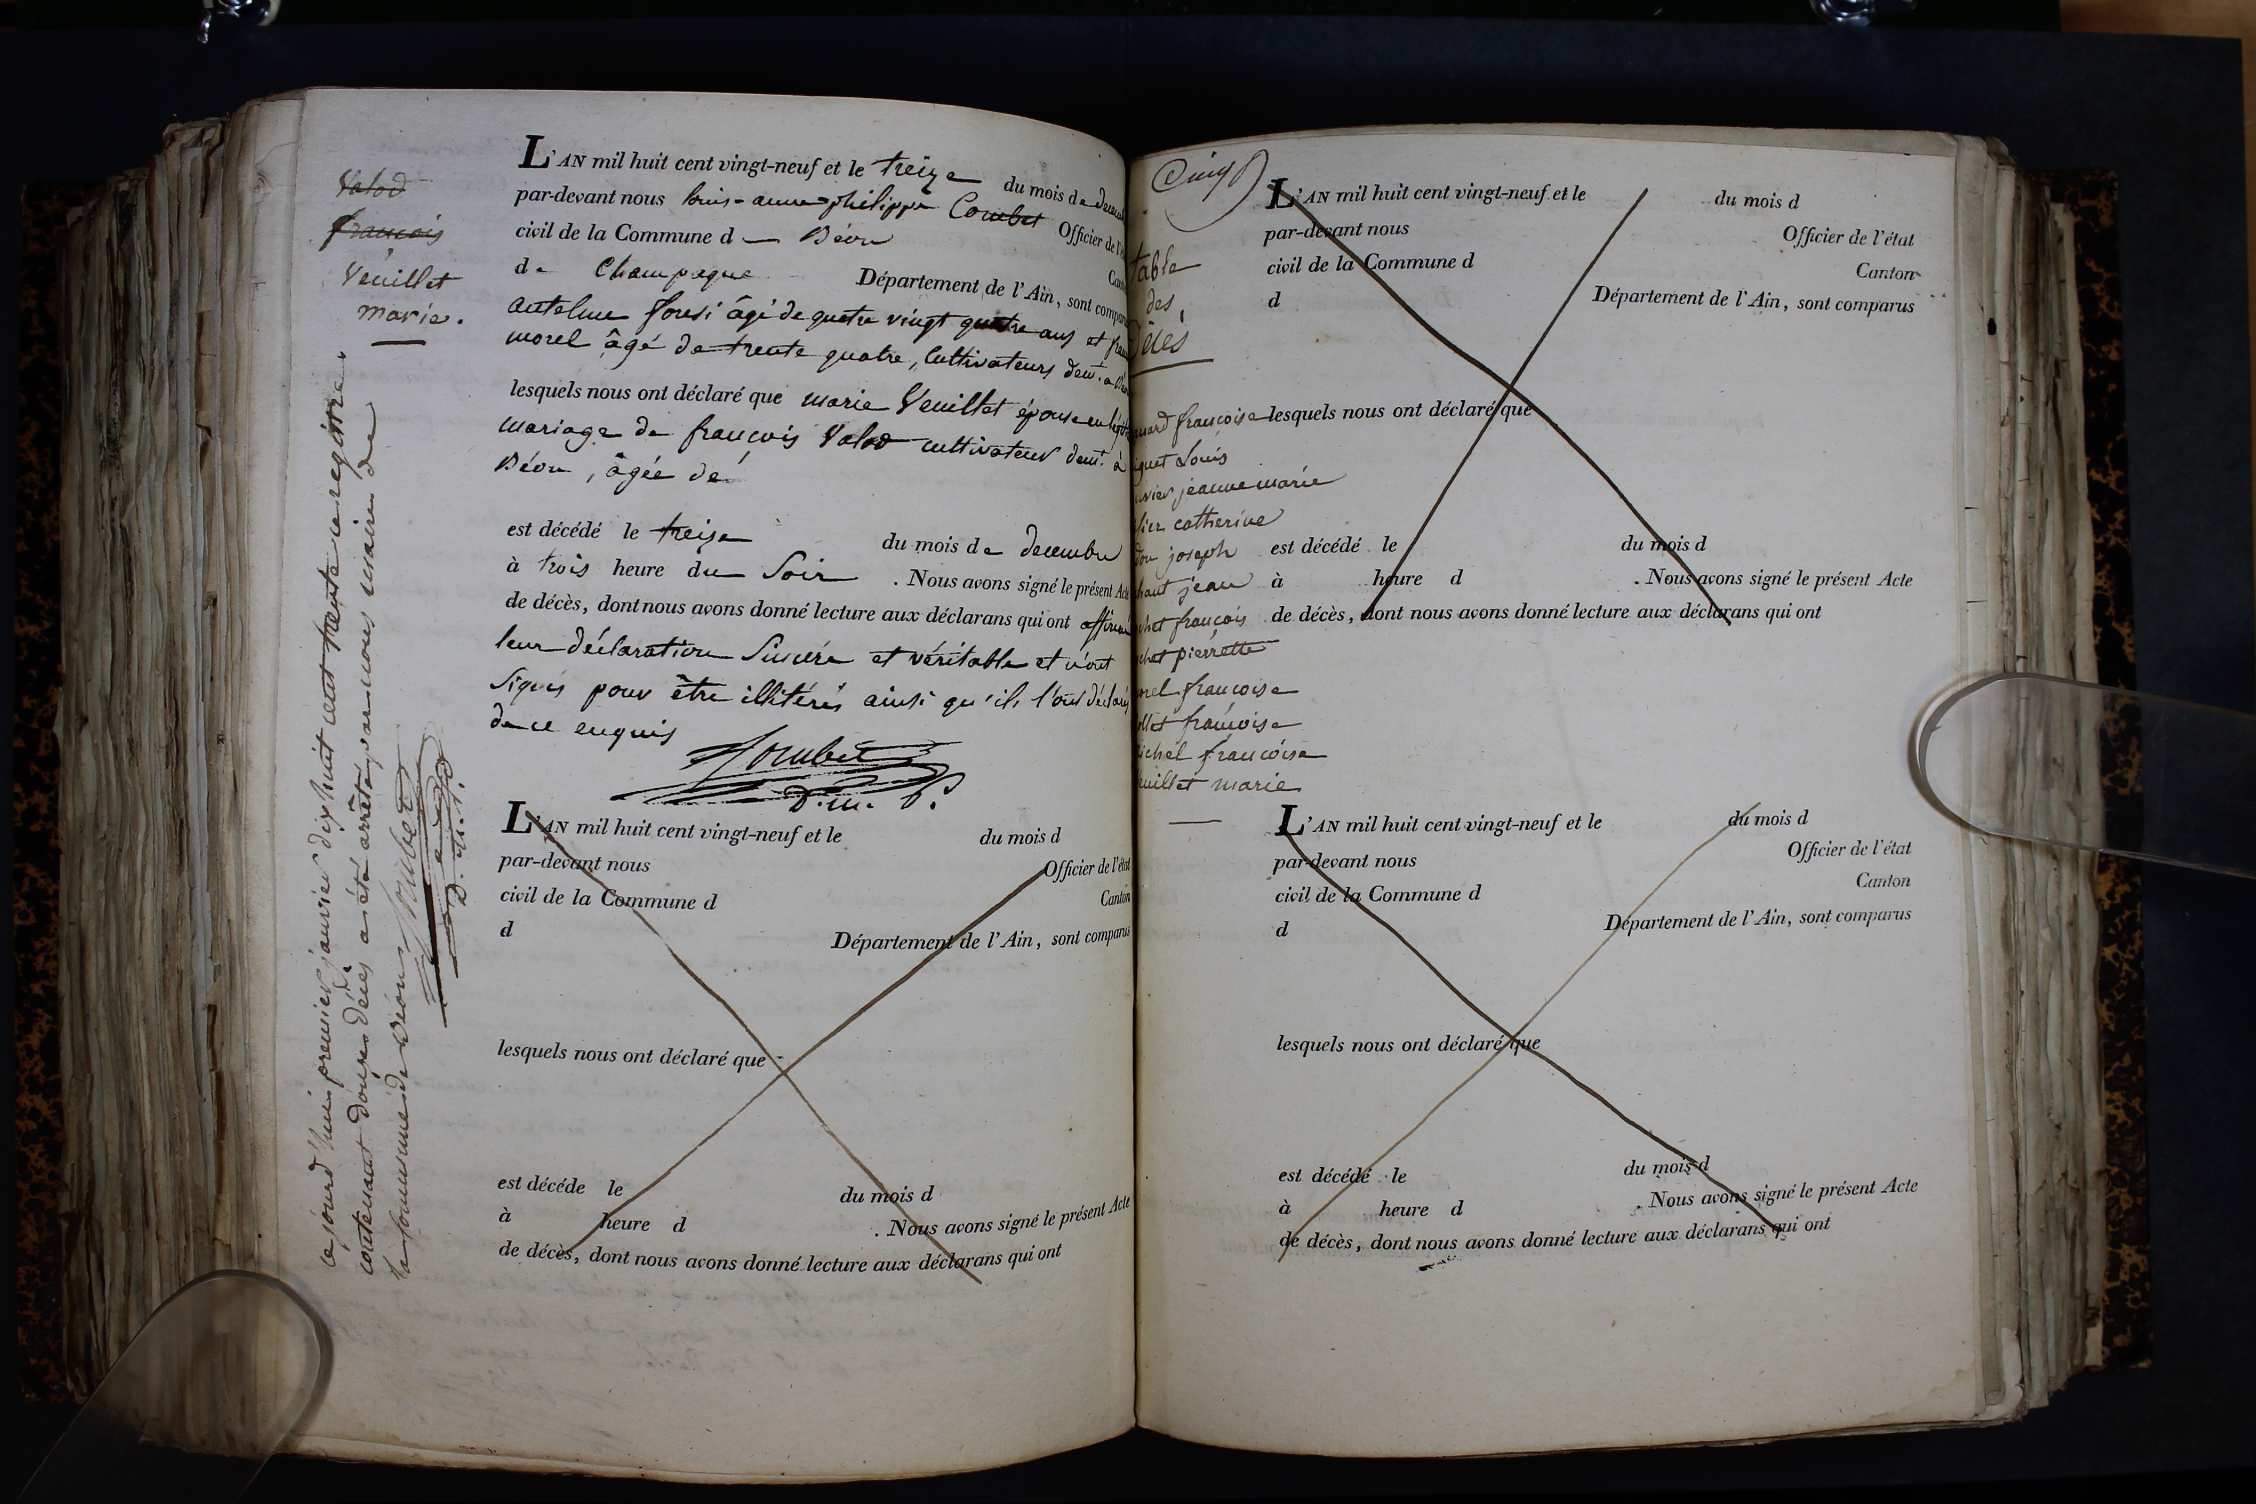 Valod
françois
Veuillet
marie.
L'AN mil huit cent vingt-neuf et le treize du mois de
par-devant nous louis-anne-philippe Combet Officier de l'
civil de la Commune d Béon
de Champagne Département de l'Ain, sont
antelme foresi âgé de quatre vingt quatre ans et
morel âgé de trente quatre, cultivateurs demt. a
lesquels nous ont déclaré que marie Veuillet épouse en
mariage de françois Valod cultivateur demt. à
Béon, âgée de
est décédé le treize du mois de decembre
à trois heure du Soir . Nous avons signé le présent Acte
de décès, dont nous avons donné lecture aux déclarans qui ont affirmé
leur déclaration Sincére et véritable et n'ont
Signés pour être illitérés ainsi qu'ils l'ont déclaré
de ce enquis
Combet
D. m. P.
ce jourd'hui premier janvier dix huit cent trente ce registre
contenant douze décés a été arrêté par nous maire de
la Commune de Béon
Combet
D. m. P.
L'AN mil huit cent vingt-neuf et le du mois d
par-devant nous Officier de l'état
civil de la Commune d Canton
d Département de l'Ain, sont comparus
lesquels nous ont déclaré que
est décéde le du mois d
à heure d . Nous avons signé le présent Acte
de décès, dont nous avons donné lecture aux déclarans qui ont
Cinq
table
des
françoise
Louis
jeanne marie
catherine
joseph
jean
françois
pierrette
françoise
françoise
françoise
marie
L'AN mil huit cent vingt-neuf et le du mois d
par-devant nous Officier de l'état
civil de la Commune d Canton
d Département de l'Ain, sont comparus
lesquels nous ont déclaré que
est décédé le du mois d
à heure d . Nous avons signé le présent Acte
de décès, dont nous avons donné lecture aux déclarans qui ont
L'AN mil huit cent vingt-neuf et le du mois d
par-devant nous Officier de l'état
civil de la Commune d Canton
d Département de l'Ain, sont comparus
lesquels nous ont déclaré que
est décédé le du mois d
à heure d . Nous avons signé le présent Acte
de décès, dont nous avons donné lecture aux déclarans qui ont